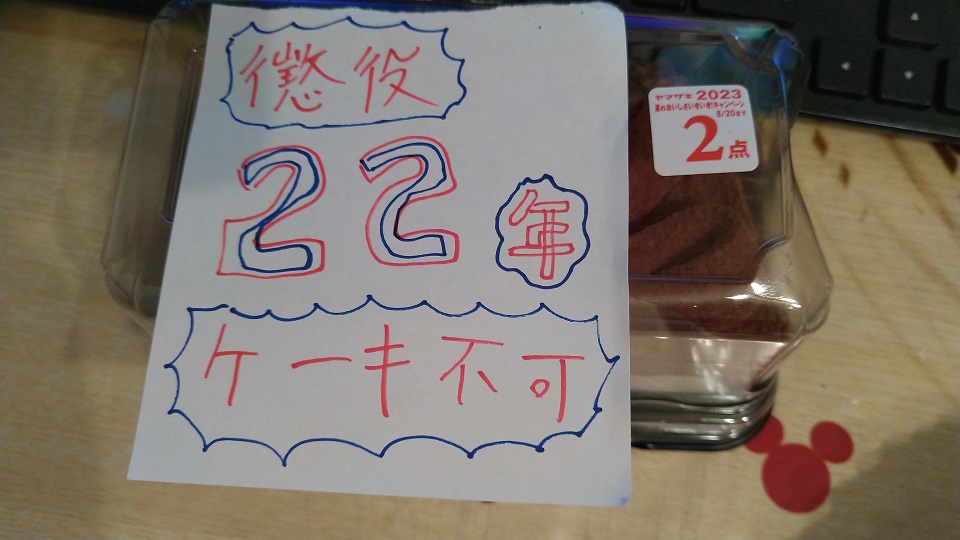 懲役
22年
ケーキ不可
ヤマザキ 2023
夏のおいしさいきいき!キャンペーン
8/20まで
2点